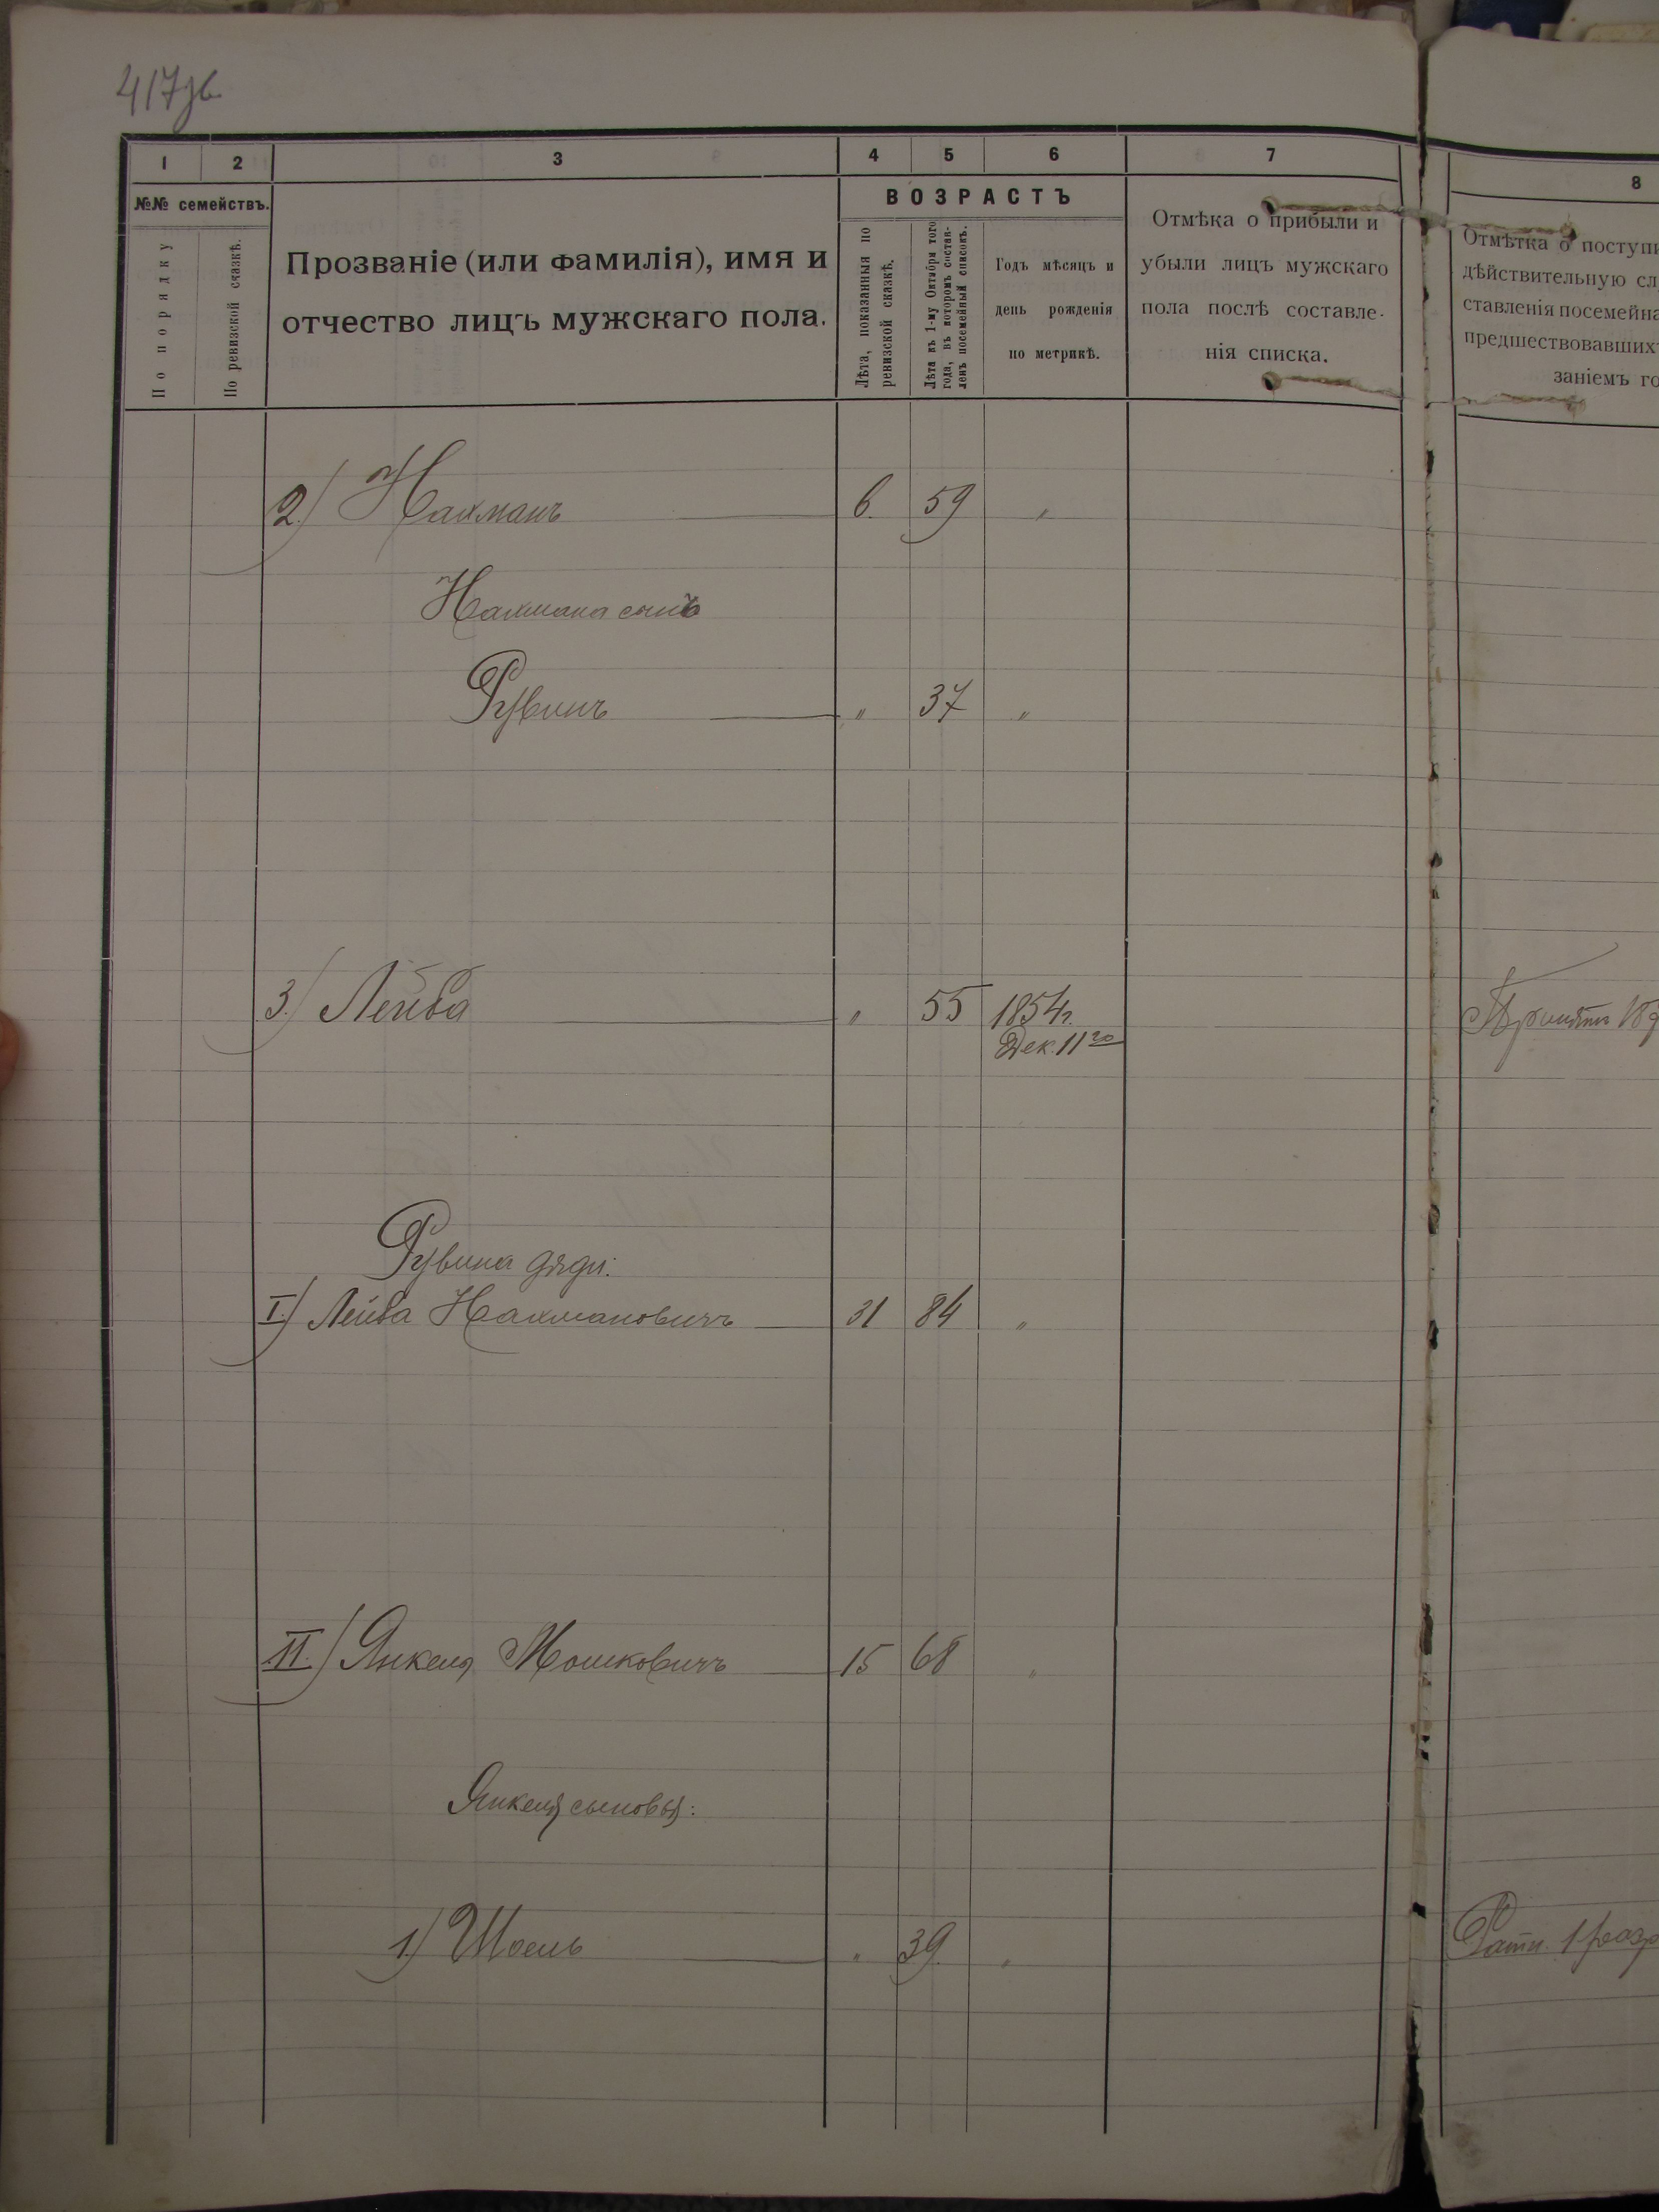 417зв
1 2 3 4 5 6 7 8
№№ семействъ.
По порядку
По ревизской сказкѣ.
Прозваніе (или фамилія), имя и
отчество лицъ мужскаго пола.
ВОЗРАСТЪ
Лѣта, показанныя по
ревизской сказкѣ.
Лѣта къ 1-му Октября того
года, въ которомъ состав-
ленъ посемейный списокъ.
Годъ мѣсяцъ и
день рожденія
по метрикѣ.
Отмѣка о прибыли и
убыли лицъ мужскаго
пола послѣ составле-
нія списка.
Отмѣтка о поступи
дѣйствительную сл
ставленія посемейна
предшествовавшихъ
заніемъ го
2.) Нахманъ 6. 59 "
Нахмана сынъ
Рувинъ " 37 "
3.) Лейба " 55 1854г. Принятъ 189
Дек. 11го
Рувина дяди:
I.) Лейба Нахмановичъ 31 84 "
II.) Янкель Мошковичъ 15 68 "
Янкеля сыновья:
1.) Шоель " 39. " Ратн. 1 разр